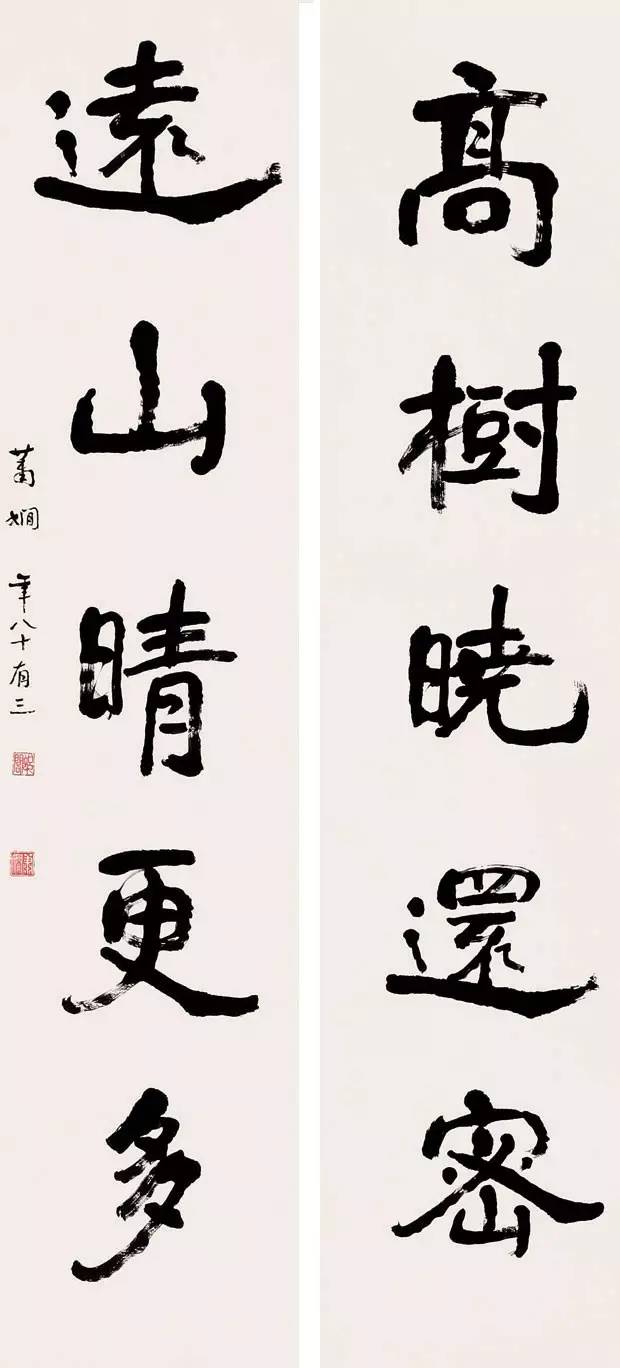 高樹曉還密
遠山晴更多
蕭嫻
年八十有三